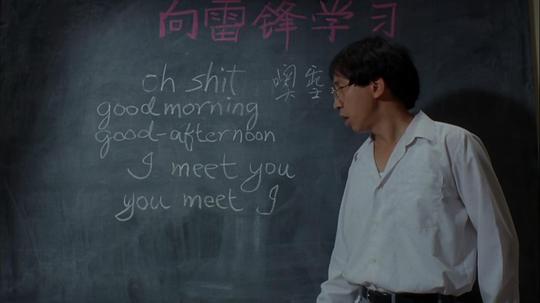 向雷锋学习
oh shit
good morning
good-afternoon
I meet you
you meet I